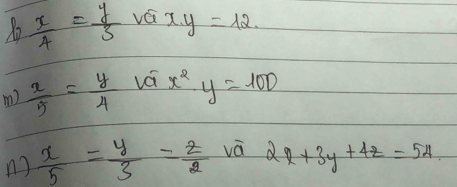 b) x/4 = y/3 và x.y = 12.
m) x/5 = y/4 và x² . y = 100
n) x/5 = y/3 = z/2 và 2x + 3y + 4z = 54.